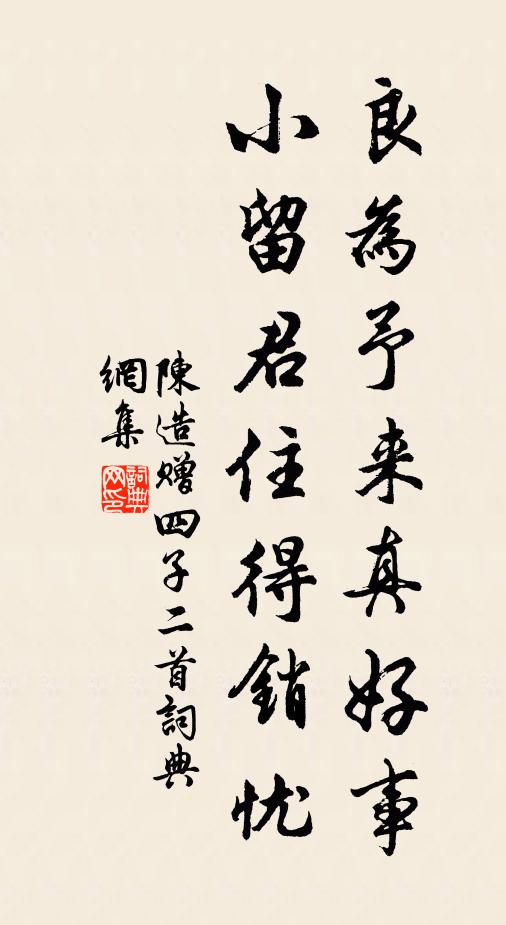 良為予来真好事
小留君住得銷忧
陳造贈四子二首詞典
網集
詞典
网印